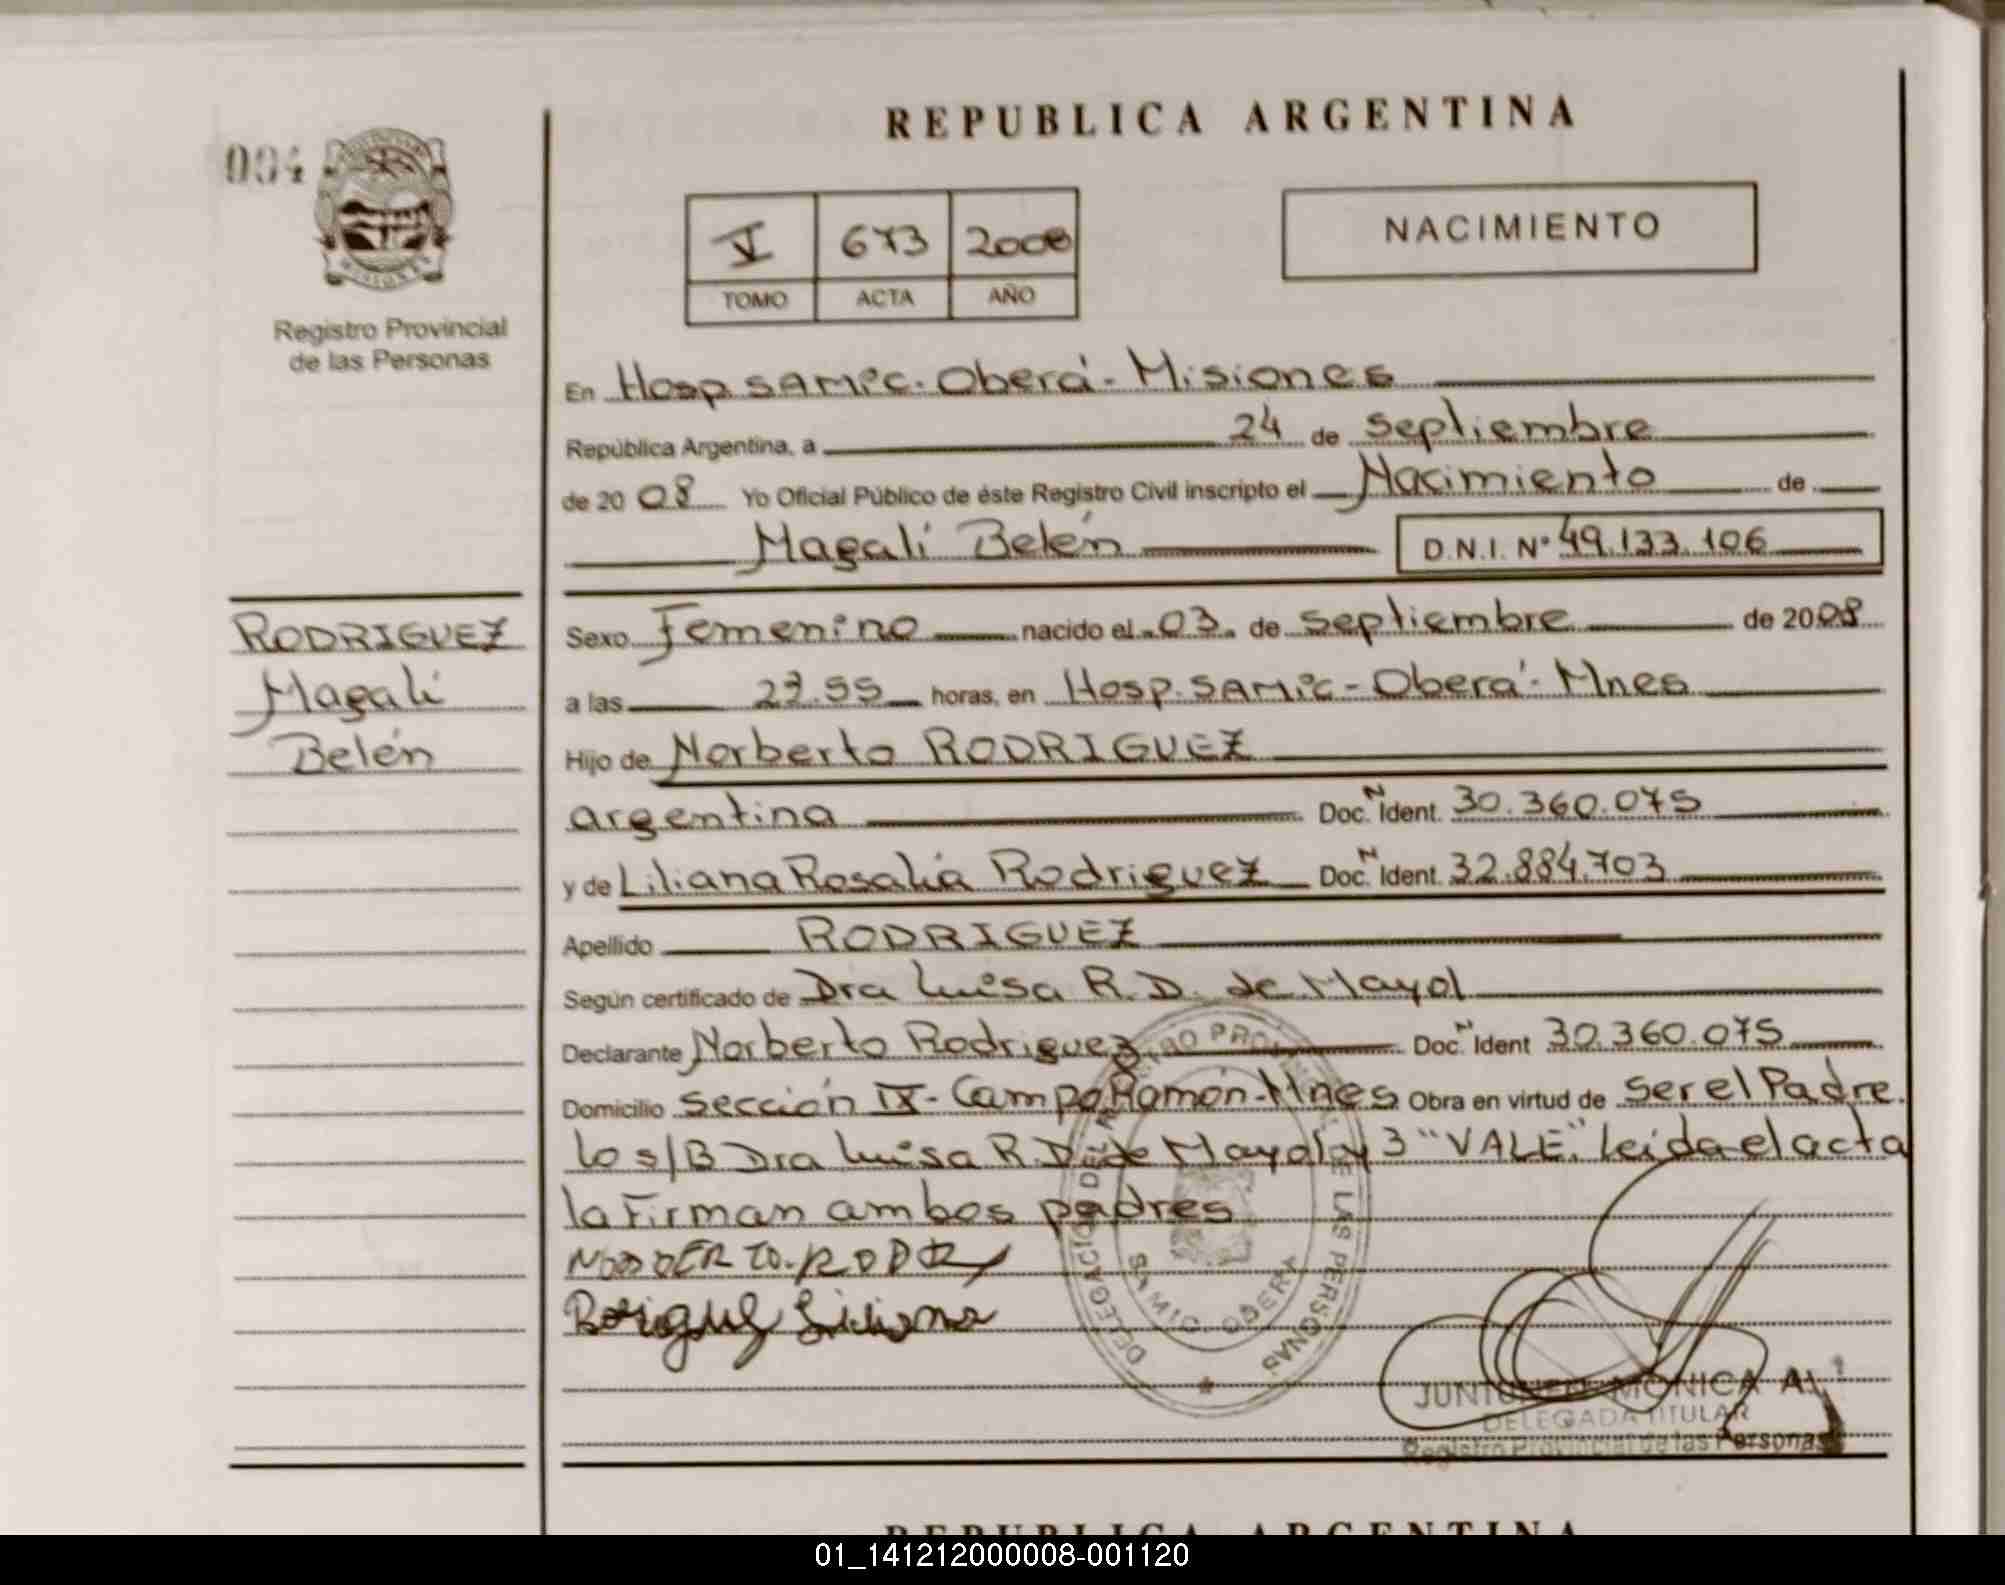 REPUBLICA ARGENTINA
004
V 673 2008
TOMO ACTA AÑO
NACIMIENTO
MISIONES
Registro Provincial
de las Personas
En Hosp. SAMic. Oberá - Misiones
República Argentina, a 24 de septiembre
de 2008 Yo Oficial Público de éste Registro Civil inscripto el Nacimiento de
Magali Belén D.N.I. Nº 49.133.106
RODRIGUEZ
Magali
Belén
Sexo Femenino nacido el 03 de septiembre de 2008
a las 55 horas, en Hosp. SAMic - Oberá - Mnes
Hijo de Norberto RODRIGUEZ
argentina Doc. N Ident. 30.360.075
y de Liliana Rosalía Rodriguez Doc. N Ident. 32.884.703
Apellido RODRIGUEZ
Según certificado de Dra Luisa R. D. de Mayol
Declarante Norberto Rodriguez Doc. N Ident 30.360.075
Domicilio sección IX - Campo Ramón - Mnes Obra en virtud de ser el Padre.
lo s/B Dra Luisa R. D. de Mayol y 3 "VALE". leida el acta
la Firman ambos padres
Liliana
DELEGACIÓN DEL REGISTRO PROVINCIAL DE LAS PERSONAS
SAMIC. OBERA
MONICA A.
DELEGADA TITULAR
Registro Provincial de las Personas
REPUBLICA ARGENTINA
01_141212000008-001120